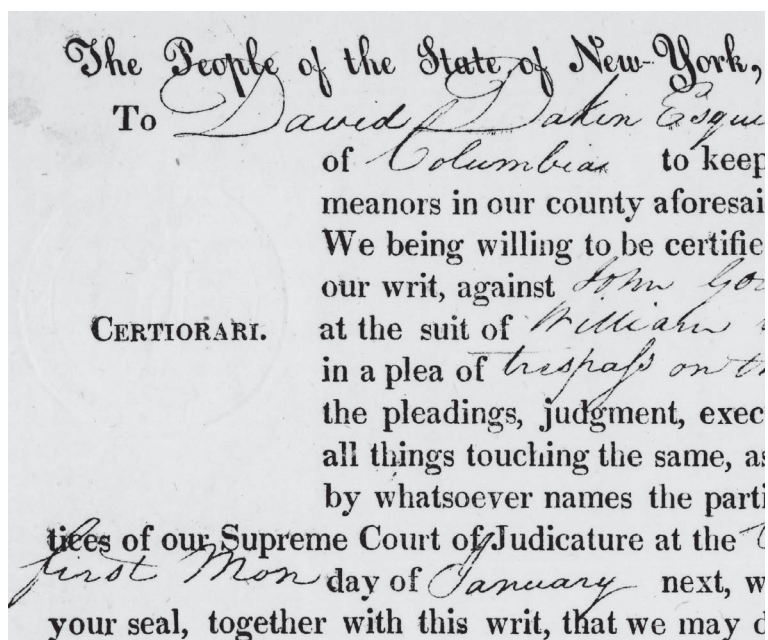 The People of the State of New-York,
To David Dakin Esqui
of Columbia to keep
meanors in our county aforesai
We being willing to be certifie
our writ, against John Gou
CERTIORARI. at the suit of William
in a plea of trespass on th
the pleadings, judgment, exec
all things touching the same, as
by whatsoever names the parti
tices of our Supreme Court of Judicature at the
first Mon day of January next, w
your seal, together with this writ, that we may d